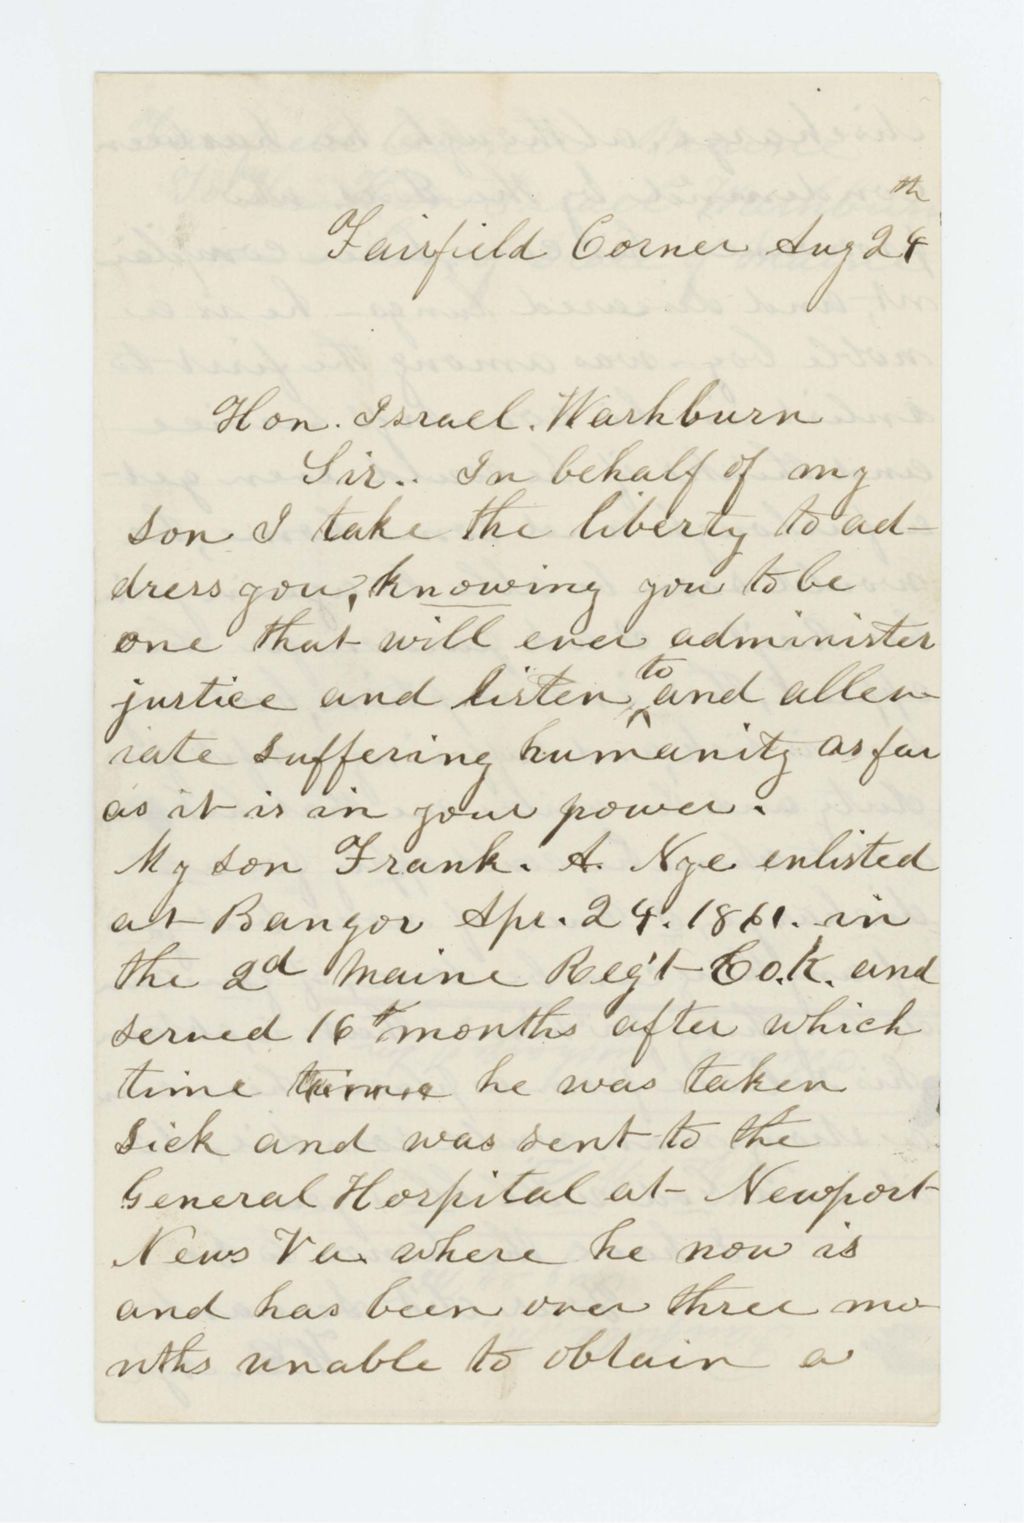 Fairfield Corner Aug 24th
Hon. Israel. Washburn
Sir.. In behalf of my
son I take the liberty to ad-
dress you, knowing you to be
one that will ever administer
justice and listen to and allev-
iate suffering humanity as far
as it is in your power.
My son Frank. A. Nye enlisted
at Bangor Apr. 24. 1861. in
the 2d Maine Reg't Co. K. and
served 16 months after which
time he was taken
sick and was sent to the
General Hospital at Newport
News Va. where he now is
and has been over three mo-
nths unable to obtain a